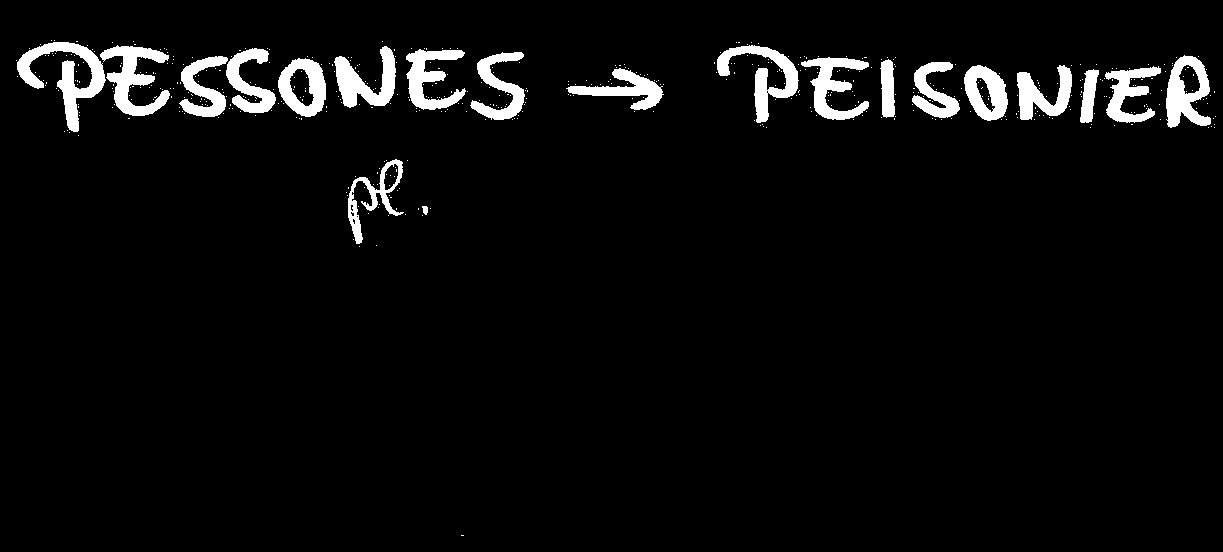 PESSONES → PEISONIER
pl.